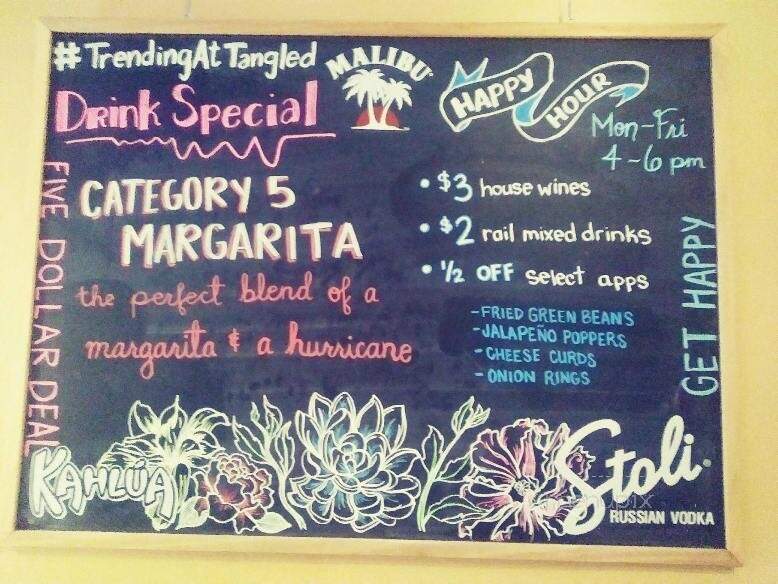 #TrendingAtTangled
Drink Special
FIVE DOLLAR DEAL
CATEGORY 5
MARGARITA
the perfect blend of a
margarita & a hurricane
MALIBU
HAPPY
HOUR
Mon-Fri
4-6 pm
• $3 house wines
• $2 rail mixed drinks
• 1/2 OFF select apps
- FRIED GREEN BEANS
- JALAPEÑO POPPERS
- CHEESE CURDS
- ONION RINGS
GET HAPPY
KAHLÚA
Stoli®
RUSSIAN VODKA